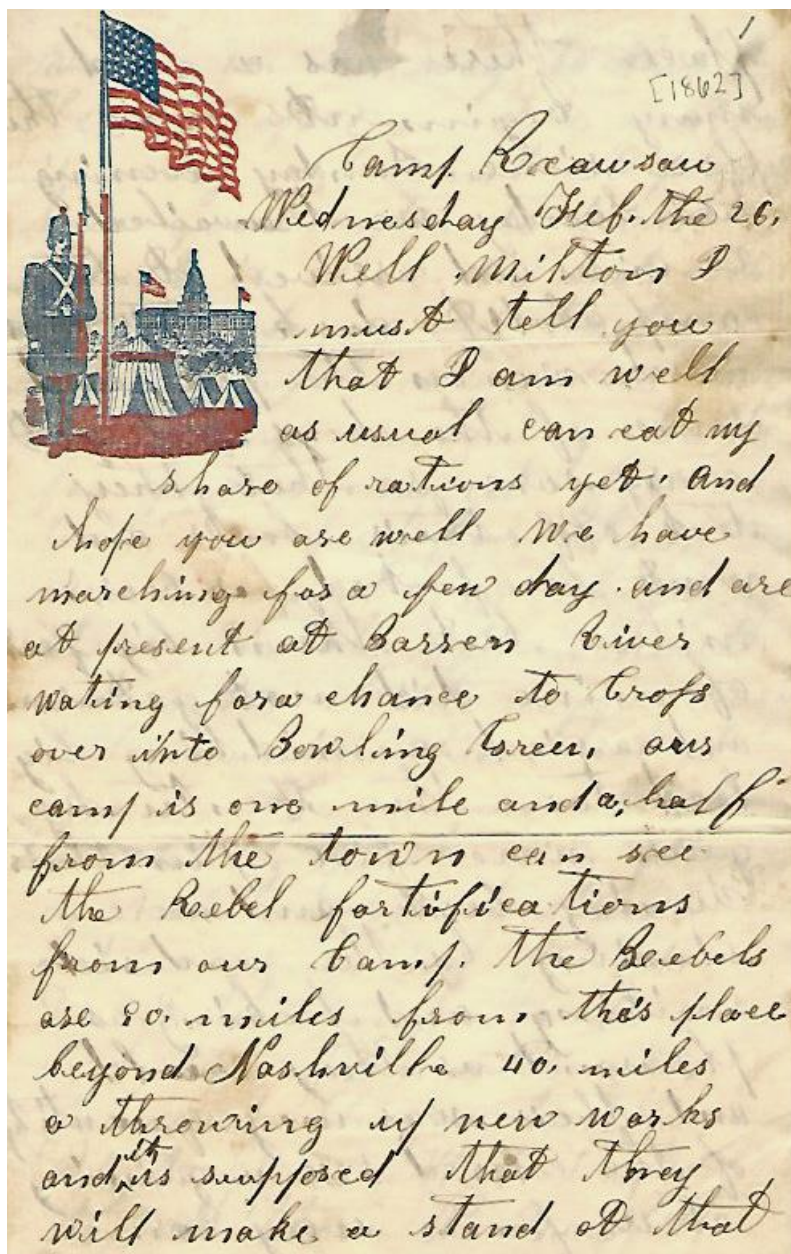 1
[1862]
Camp Reawsau
Wednesday Feb. the 26.
Well Milton I
must tell you
that I am well
as usual can eat my
share of rations yet. and
hope you are well We have
marching for a few day. and are
at present at Barren River
wating for a chance to Cross
over into Bowling Green, our
camp is one mile and a, half
from the town can see
the Rebel fortifications
from our Camp. the Reebels
are 80. miles from this place
beyond Nashville 40. miles
a throwing up new works
and it is supposed that they
will make a stand at that